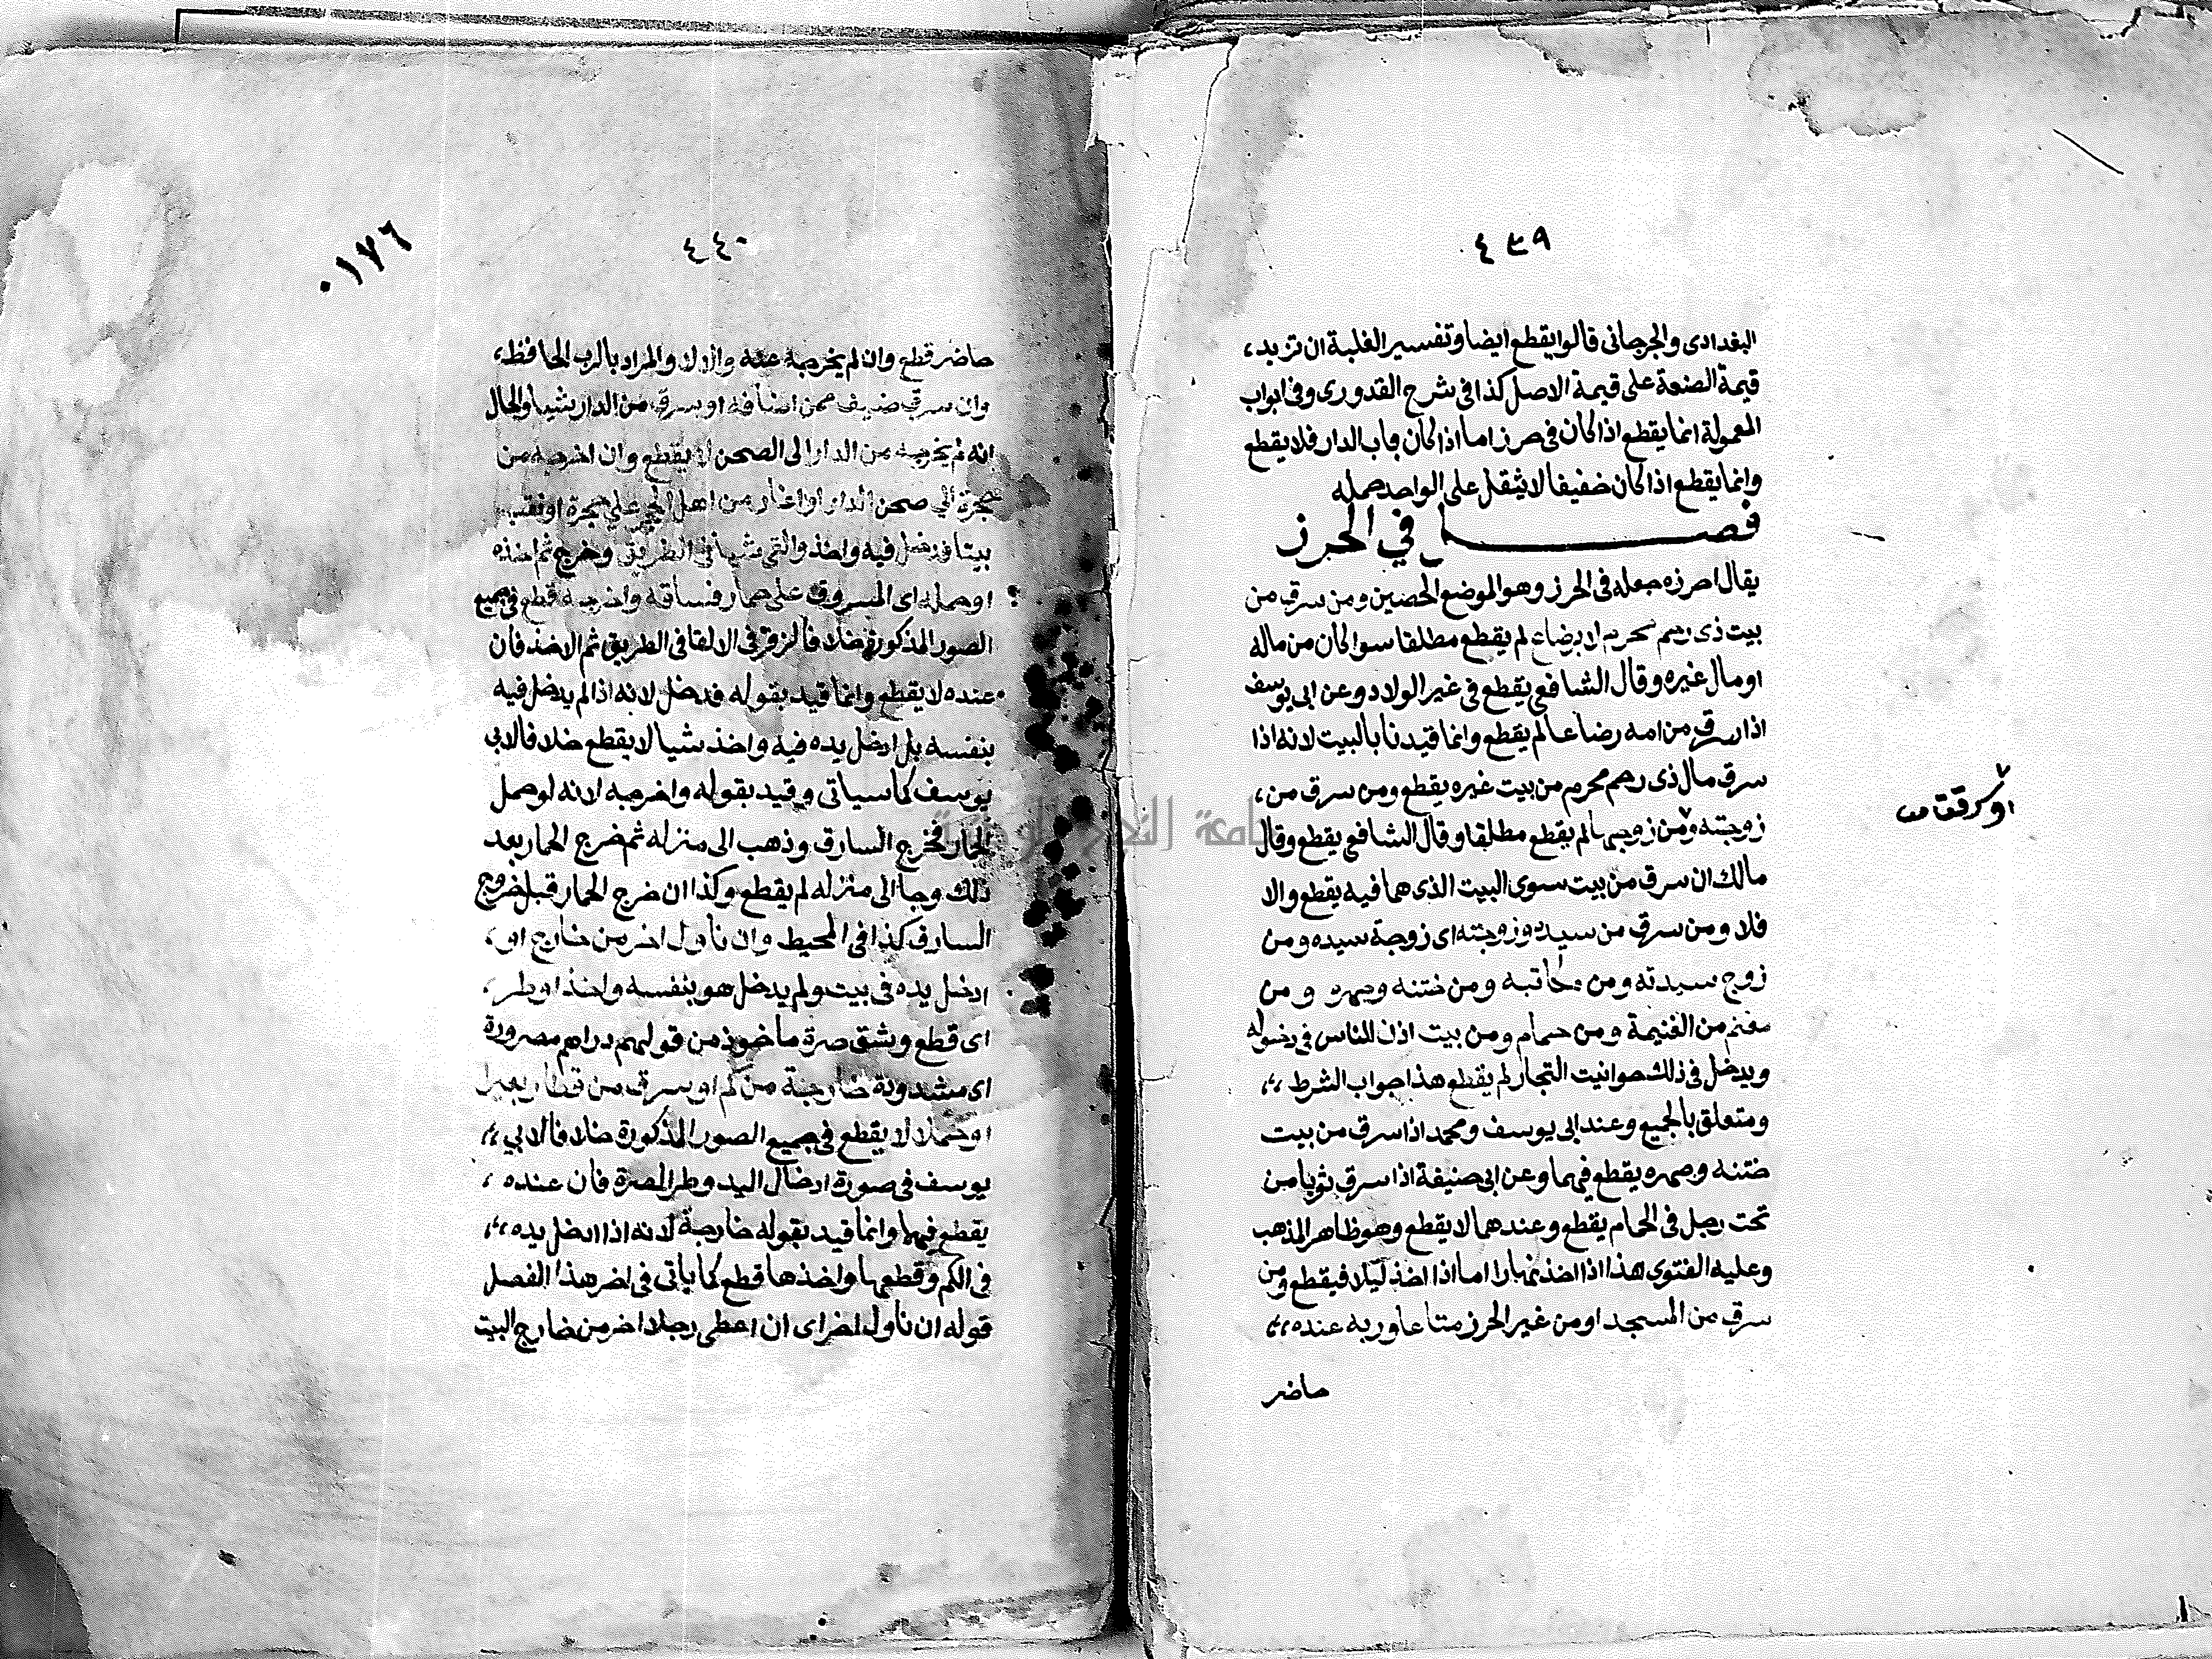 ٤٣٩
البغدادى والجرجانى قالوا يقطع ايضا وتفسير الغلبة ان تزيد
قيمة الصنعة على قيمة الاصل كذا فى شرح القدورى وفى ابواب
المعمولة انما يقطع اذا كان فى حرز اما اذا كان باب الدار فلا يقطع
وانما يقطع اذا كان خفيفا لا يثقل على الواحد حمله
فصل في الحرز
يقال احرزه جعله فى الحرز وهو الموضع الحصين ومن سرق من
بيت ذى رحم محرم لا برضاع لم يقطع مطلقا سوا كان من ماله
او مال غيره وقال الشافعى يقطع فى غير الولاد وعن ابى يوسف
اذا سرق من امه رضاعا لم يقطع وانما قيدنا بالبيت لانه اذا
سرق مال ذى رحم محرم من بيت غيره يقطع ومن سرق من
زوجته ومن زوجها لم يقطع مطلقا وقال الشافعى يقطع وقال
مالك ان سرق من بيت سوى البيت الذى هما فيه يقطع والا
فلا ومن سرق من سيده وزوجته اى زوجة سيده ومن
زوج سيدته ومن مكاتبه ومن ختنه وصهره ومن
مغنم من الغنيمة ومن حمام ومن بيت اذن للناس فى دخوله
ويدخل فى ذلك حوانيت التجار لم يقطع هذا جواب الشرط
ومتعلق بالجميع وعند ابى يوسف ومحمد اذا سرق من بيت
ختنه وصهره يقطع فيهما وعن ابى حنيفة اذا سرق ثوبا من
تحت رجل فى الحمام يقطع وعندهما لا يقطع وهو ظاهر المذهب
وعليه الفتوى هذا اذا اخذ نهارا اما اذا اخذ ليلا فيقطع ومن
سرق من المسجد او من غير الحرز متاعا وربه عنده
حاضر
٤٤٠
٠١٧٦
حاضر قطع وان لم يخرجه عنه والمراد بالرب الحافظ
وان سرق ضيف ممن اضافه او سرق من الدار شيا والحال
انه لم يخرجه من الدار الى الصحن لا يقطع وان اخرجه من
حجرة الى صحن الدار او اغار من اهل الحجر على حجرة او نقب
بيتا فدخل فيه واخذ والقى شيا فى الطريق وخرج ثم اخذه
او حمله اى المسروق على حمار فساقه واخرجه قطع فى جميع
الصور المذكورة خلافا لزفر فى الالقا فى الطريق ثم الاخذ فان
عنده لا يقطع وانما قيد بقوله فدخل لانه اذا لم يدخل فيه
بنفسه بل ادخل يده فيه واخذ شيا لا يقطع خلافا لابى
يوسف كما سياتى وقيد بقوله واخرجه لانه لو حمل
الحمار فخرج السارق وذهب الى منزله ثم خرج الحمار بعد
ذلك وجا الى منزله لم يقطع وكذا ان خرج الحمار قبل خروج
السارق كذا فى المحيط وان ناول اخر من خارج او
ادخل يده فى بيت ولم يدخل هو بنفسه واخذ او طر
اى قطع وشق صرة ماخوذ من قولهم دراهم مصرورة
اى مشدودة خارجة من كم او سرق من قطار بعيرا
او حملا لا يقطع فى جميع الصور المذكورة خلافا لابي
يوسف فى صورة ادخال اليد وطر الصرة فان عنده
يقطع فيهما وانما قيد بقوله خارجة لانه اذا ادخل يده
فى الكم وقطعها واخذها قطع كما ياتى فى اخر هذا الفصل
قوله ان ناول اخر اى ان اعطى رجلا اخر من خارج البيت